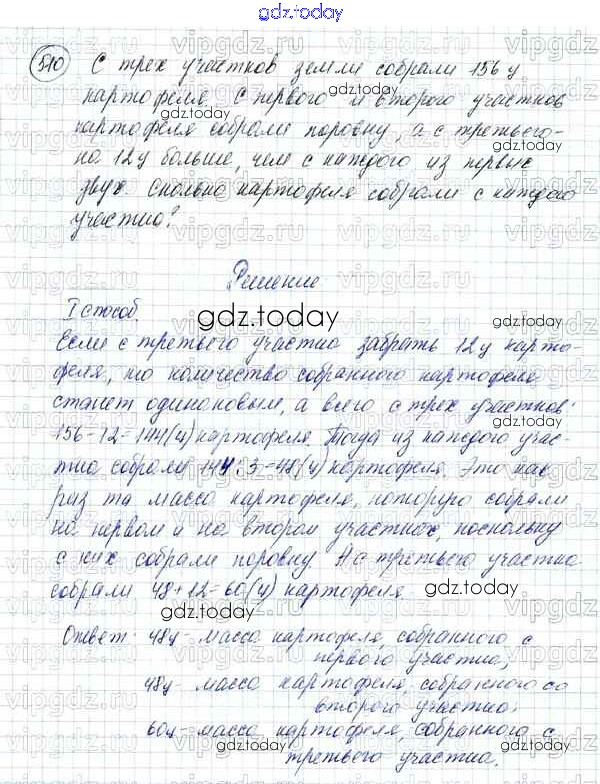 gdz.today
510 С трех участков земли собрали 156 ц
картофеля. С первого и второго участков
картофеля собрали поровну, а с третьего-
на 12 ц больше, чем с каждого из первых
двух. Сколько картофеля собрали с каждого
участка?
Решение
I способ.
gdz.today
Если с третьего участка забрать 12 ц карто-
феля, то количество собранного картофеля
станет одинаковым, а всего с трех участков:
156-12=144(ц) картофеля. Тогда из каждого учас-
тка собрали 144:3=48(ц) картофеля. Это как
раз та масса картофеля, которую собрали
на первом и на втором участках, поскольку
с них собрали поровну. А с третьего участка
собрали 48+12=60(ц) картофеля.
gdz.today
Ответ: 48ц - масса картофеля, собранного с
первого участка;
48ц - масса картофеля, собранного со
второго участка;
60ц - масса картофеля, собранного с
третьего участка.
gdz.today
gdz.today
gdz.today